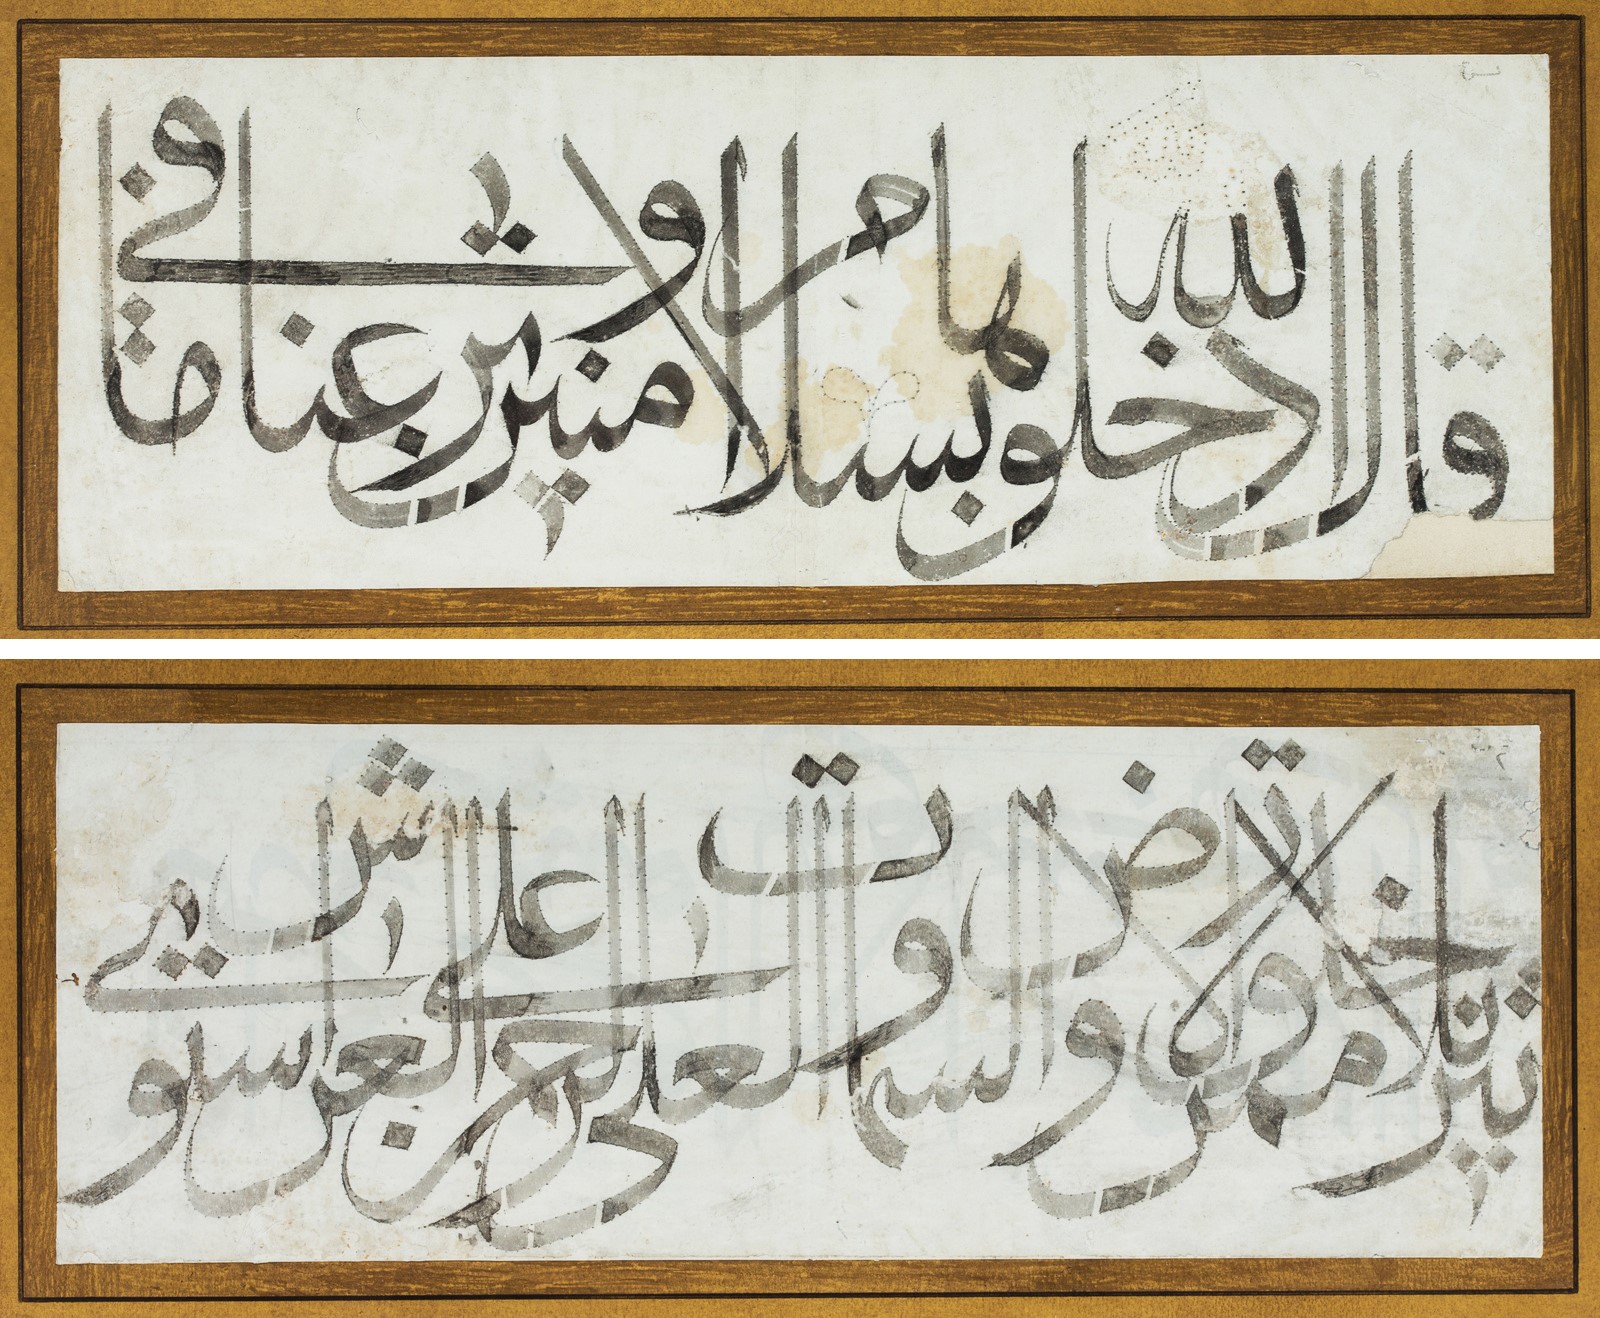 قال الله ادخلوها بسلام امنين و نزعنا ما في
تنزيلا ممن خلق الارض والسموات العلى الرحمن على العرش استوى